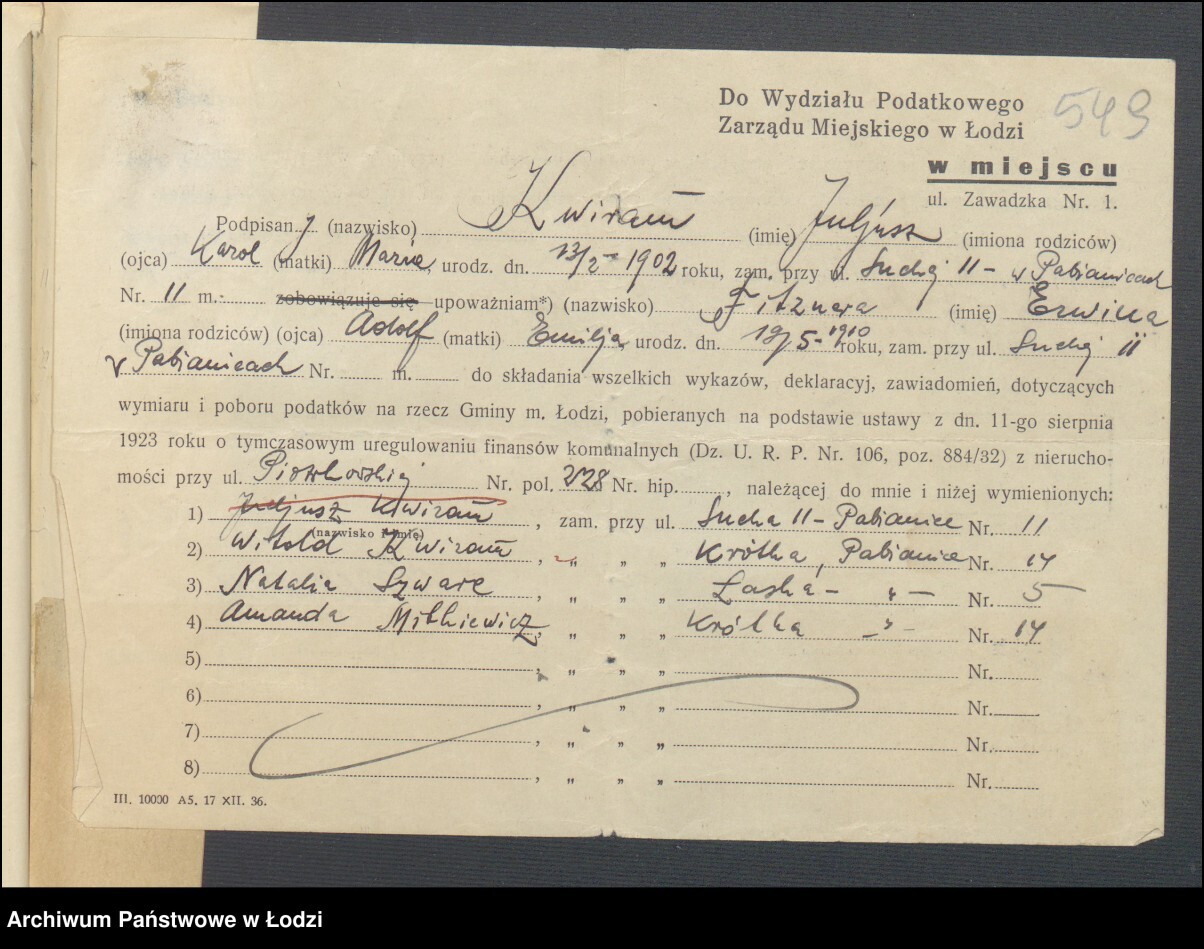 Do Wydziału Podatkowego
Zarządu Miejskiego w Łodzi
549
w miejscu
ul. Zawadzka Nr. 1.
Podpisany (nazwisko) Kwiram (imię) Juljusz (imiona rodziców)
(ojca) Karol (matki) Maria, urodz. dn. 13/2 - 1902 roku, zam. przy ul. Suchej 11 - w Pabianicach
Nr. 11 m. - zobowiązuje się upoważniam*) (nazwisko) Fitznera (imię) Erwina
(imiona rodziców) (ojca) Adolf (matki) Emilja, urodz. dn. 19/5 - 1910 roku, zam. przy ul. Suchej 11
w Pabianicach Nr. m. do składania wszelkich wykazów, deklaracyj, zawiadomień, dotyczących
wymiaru i poboru podatków na rzecz Gminy m. Łodzi, pobieranych na podstawie ustawy z dn. 11-go sierpnia
1923 roku o tymczasowym uregulowaniu finansów komunalnych (Dz. U. R. P. Nr. 106, poz. 884/32) z nierucho-
mości przy ul. Piotrkowskiej Nr. pol. 228 Nr. hip. , należącej do mnie i niżej wymienionych:
1) Juljusz Kwiram , zam. przy ul. Sucha 11 - Pabianice Nr. 11
(nazwisko i imię)
2) Witold Kwiram , „ „ „ Krótka, Pabianice Nr. 14
3) Natalia Szware , „ „ „ Łaska - „ - Nr. 5
4) Amanda Mitkiewicz, „ „ „ Krótka - „ - Nr. 14
5) , „ „ „ Nr.
6) , „ „ „ Nr.
7) , „ „ „ Nr.
8) , „ „ „ Nr.
III. 10000 A5. 17 XII. 36.
Archiwum Państwowe w Łodzi